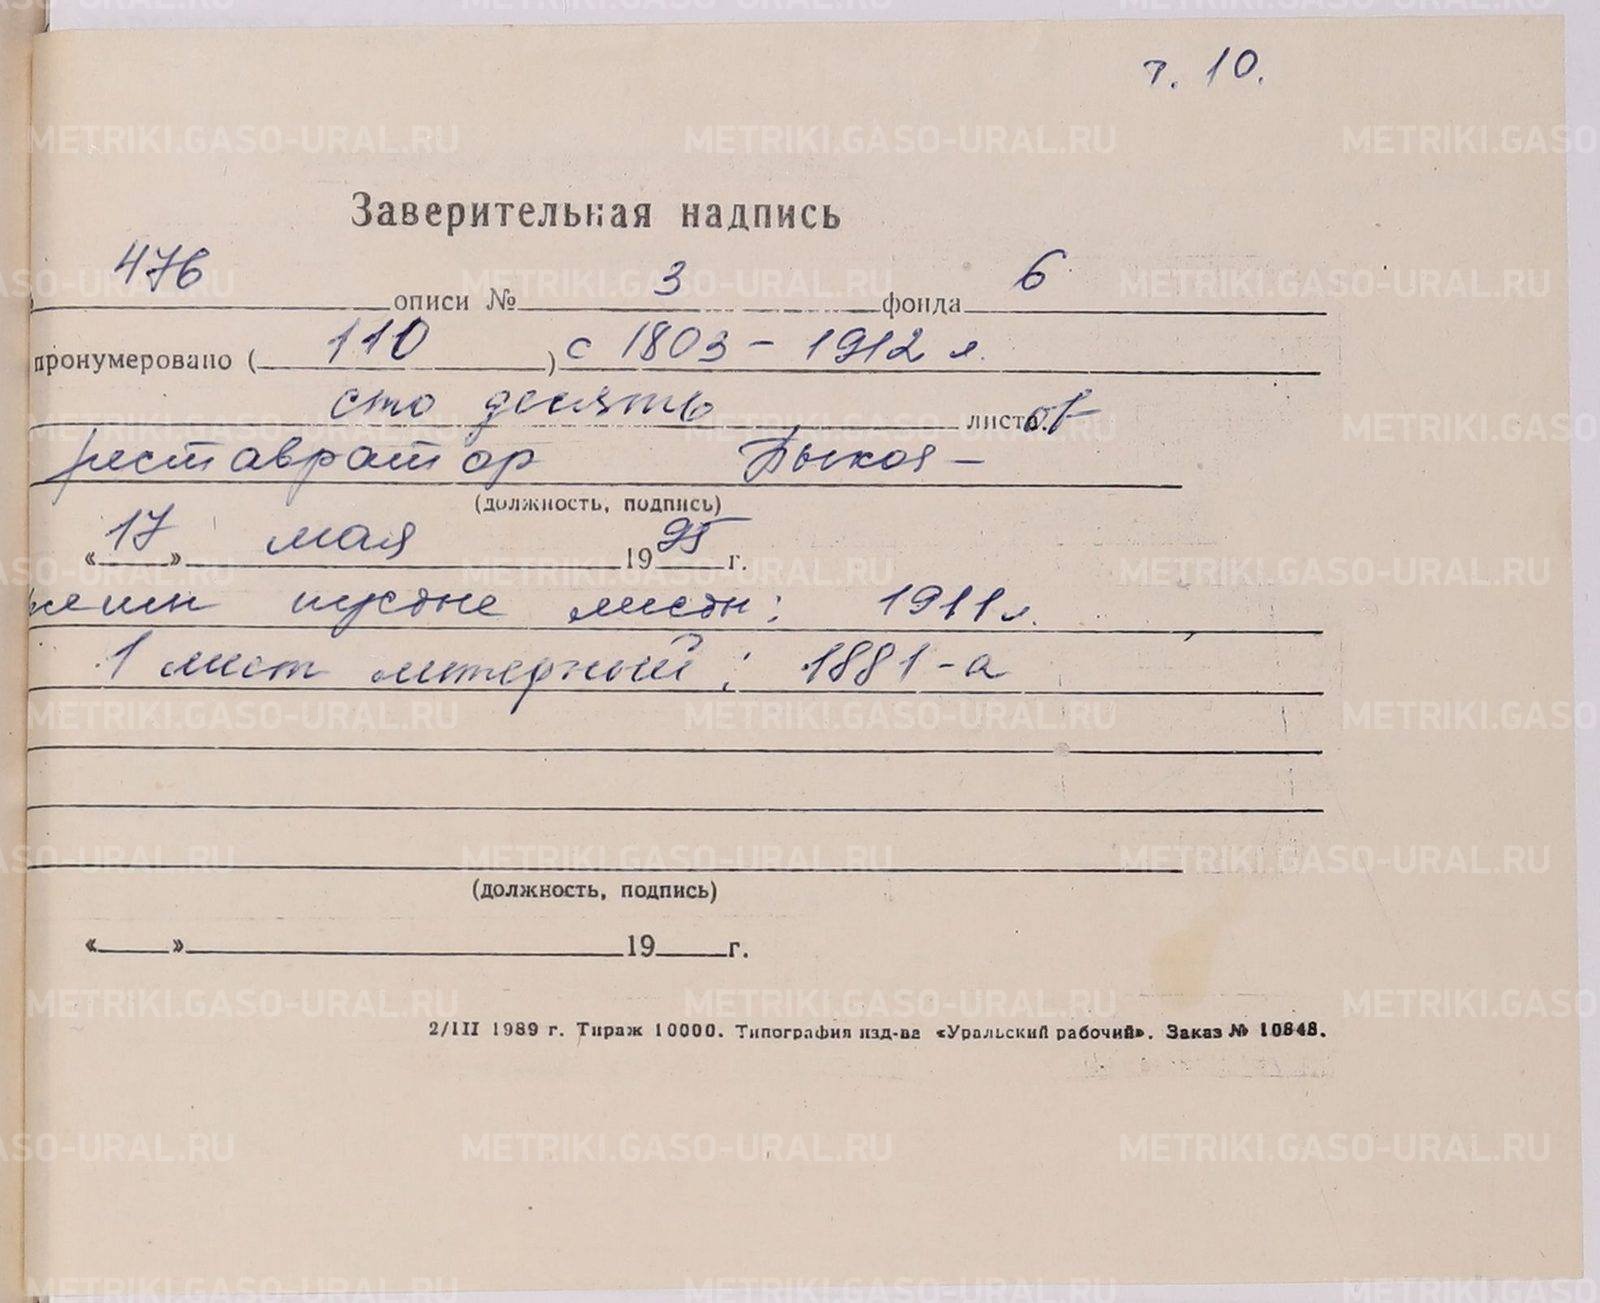 т. 10.
Заверительная надпись
476 описи № 3 фонда 6
пронумеровано ( 110 ) с 1803 – 1912 л.
сто десять листов
реставратор Быков
(должность, подпись)
« 17 » мая 19 95 г.
пустые листы: 1911 л.
1 лист литерный: 1881-а
(должность, подпись)
« » 19 г.
2/III 1989 г. Тираж 10000. Типография изд-ва «Уральский рабочий». Заказ № 10848.
METRIKI.GASO-URAL.RU